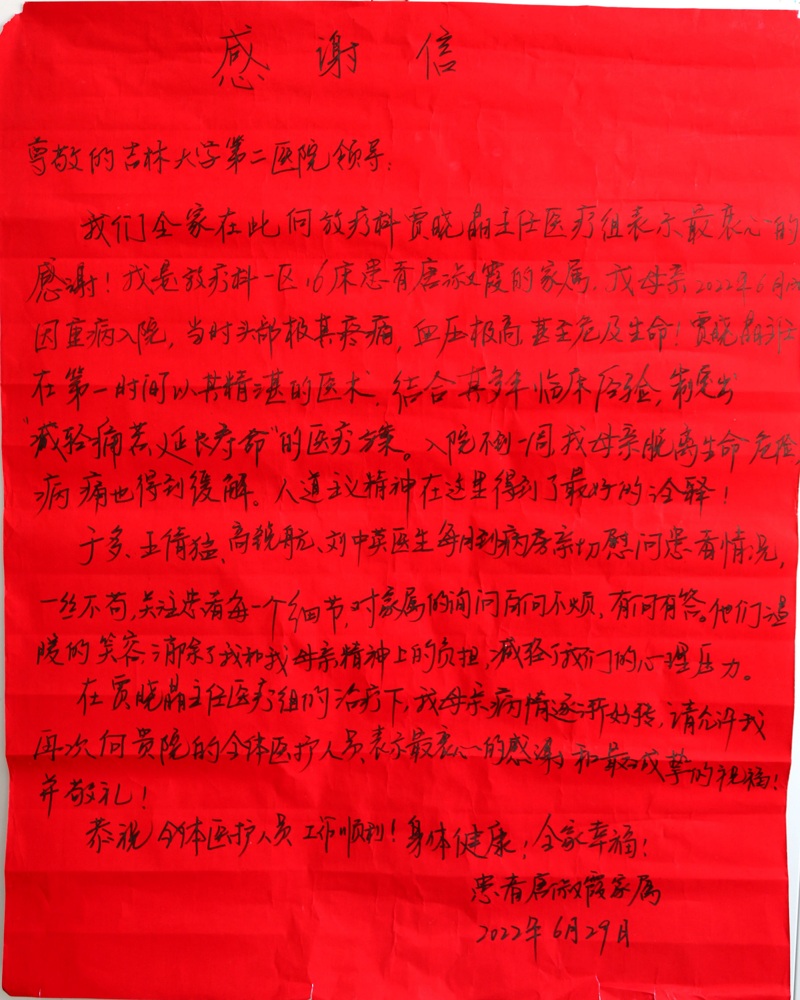 感谢信
尊敬的吉林大学第二医院领导:
我们全家在此向放疗科贾晓晶主任医疗组表示最衷心的
感谢!我是放疗科一区16床患者唐淑霞的家属,我母亲2022年6月
因重病入院,当时头部极其疼痛,血压极高,甚至危及生命!贾晓晶
在第一时间以其精湛的医术,结合其多年临床经验,制定出
“减轻痛苦、延长寿命”的医疗方案。入院不到一周,我母亲脱离生命危险,
病痛也得到缓解。人道主义精神在这里得到了最好的诠释!
于多、王倩猛、高锐航、刘中英医生每日到病房亲切慰问患者情况,
一丝不苟,关注患者每一个细节,对家属的询问百问不烦,有问有答。他们温
暖的笑容,消除了我和我母亲精神上的负担,减轻了我们的心理压力。
在贾晓晶主任医疗组的治疗下,我母亲病情逐渐好转,请允许我
再次向贵院的全体医护人员,表示最衷心的感谢和最诚挚的祝福!
并敬礼!
恭祝全体医护人员工作顺利!身体健康!全家幸福!
患者唐淑霞家属
2022年6月29日